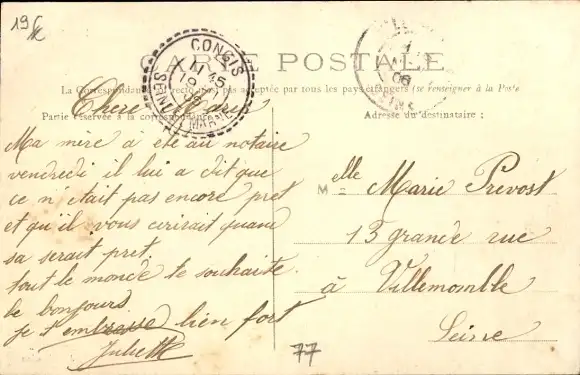 19
CARTE POSTALE
CONGIS
SEINE ET MARNE
La Correspondance au recto n'est pas acceptée par tous les pays étrangers (se renseigner à la Poste
Chere Marie
Partie réservée à la correspondance
Adresse du destinataire :
Ma mère a été au notaire
vendredi il lui a dit que
ce n'etait pas encore pret
et qu'il vous ecrirait quand
sa serait pret.
tout le monde te souhaite
le bonjours
je t'embrasse bien fort
Juliette
Melle Marie Prevost
13 grande rue
à Villemomble
Seine
77